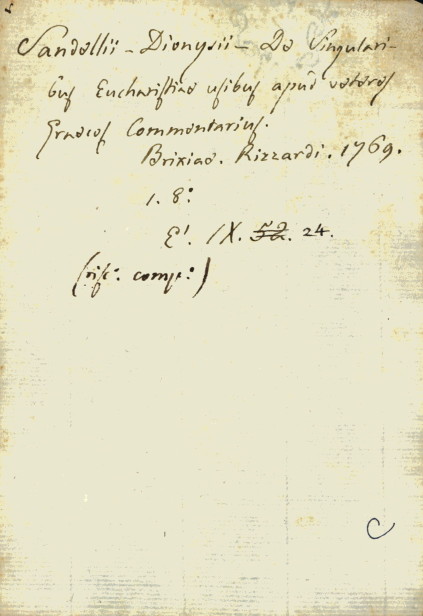 Sandellii - Dionysii - De Singulari-
bus Eucharistiae usibus apud veteres
Graecos Commentarius.
Brixiae. Rizzardi. 1769.
1. 8°
E'. IX. 52. 24.
(risc.° comp.°)
C